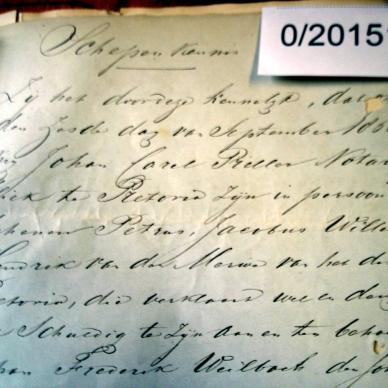 0/2015
Schepen Kennis
Zij het door deze kennelijk, dat
den zesde dag van September 186
Johan Carel Preller Notar
liek te Pretoria zijn in persoon
schenen Petrus, Jacobus Wille
Hendrik van der Merwe van het di
retoria, die verklaart wel en deug
Schuldig te zijn aan en ten beho
Frederik Weilbach den